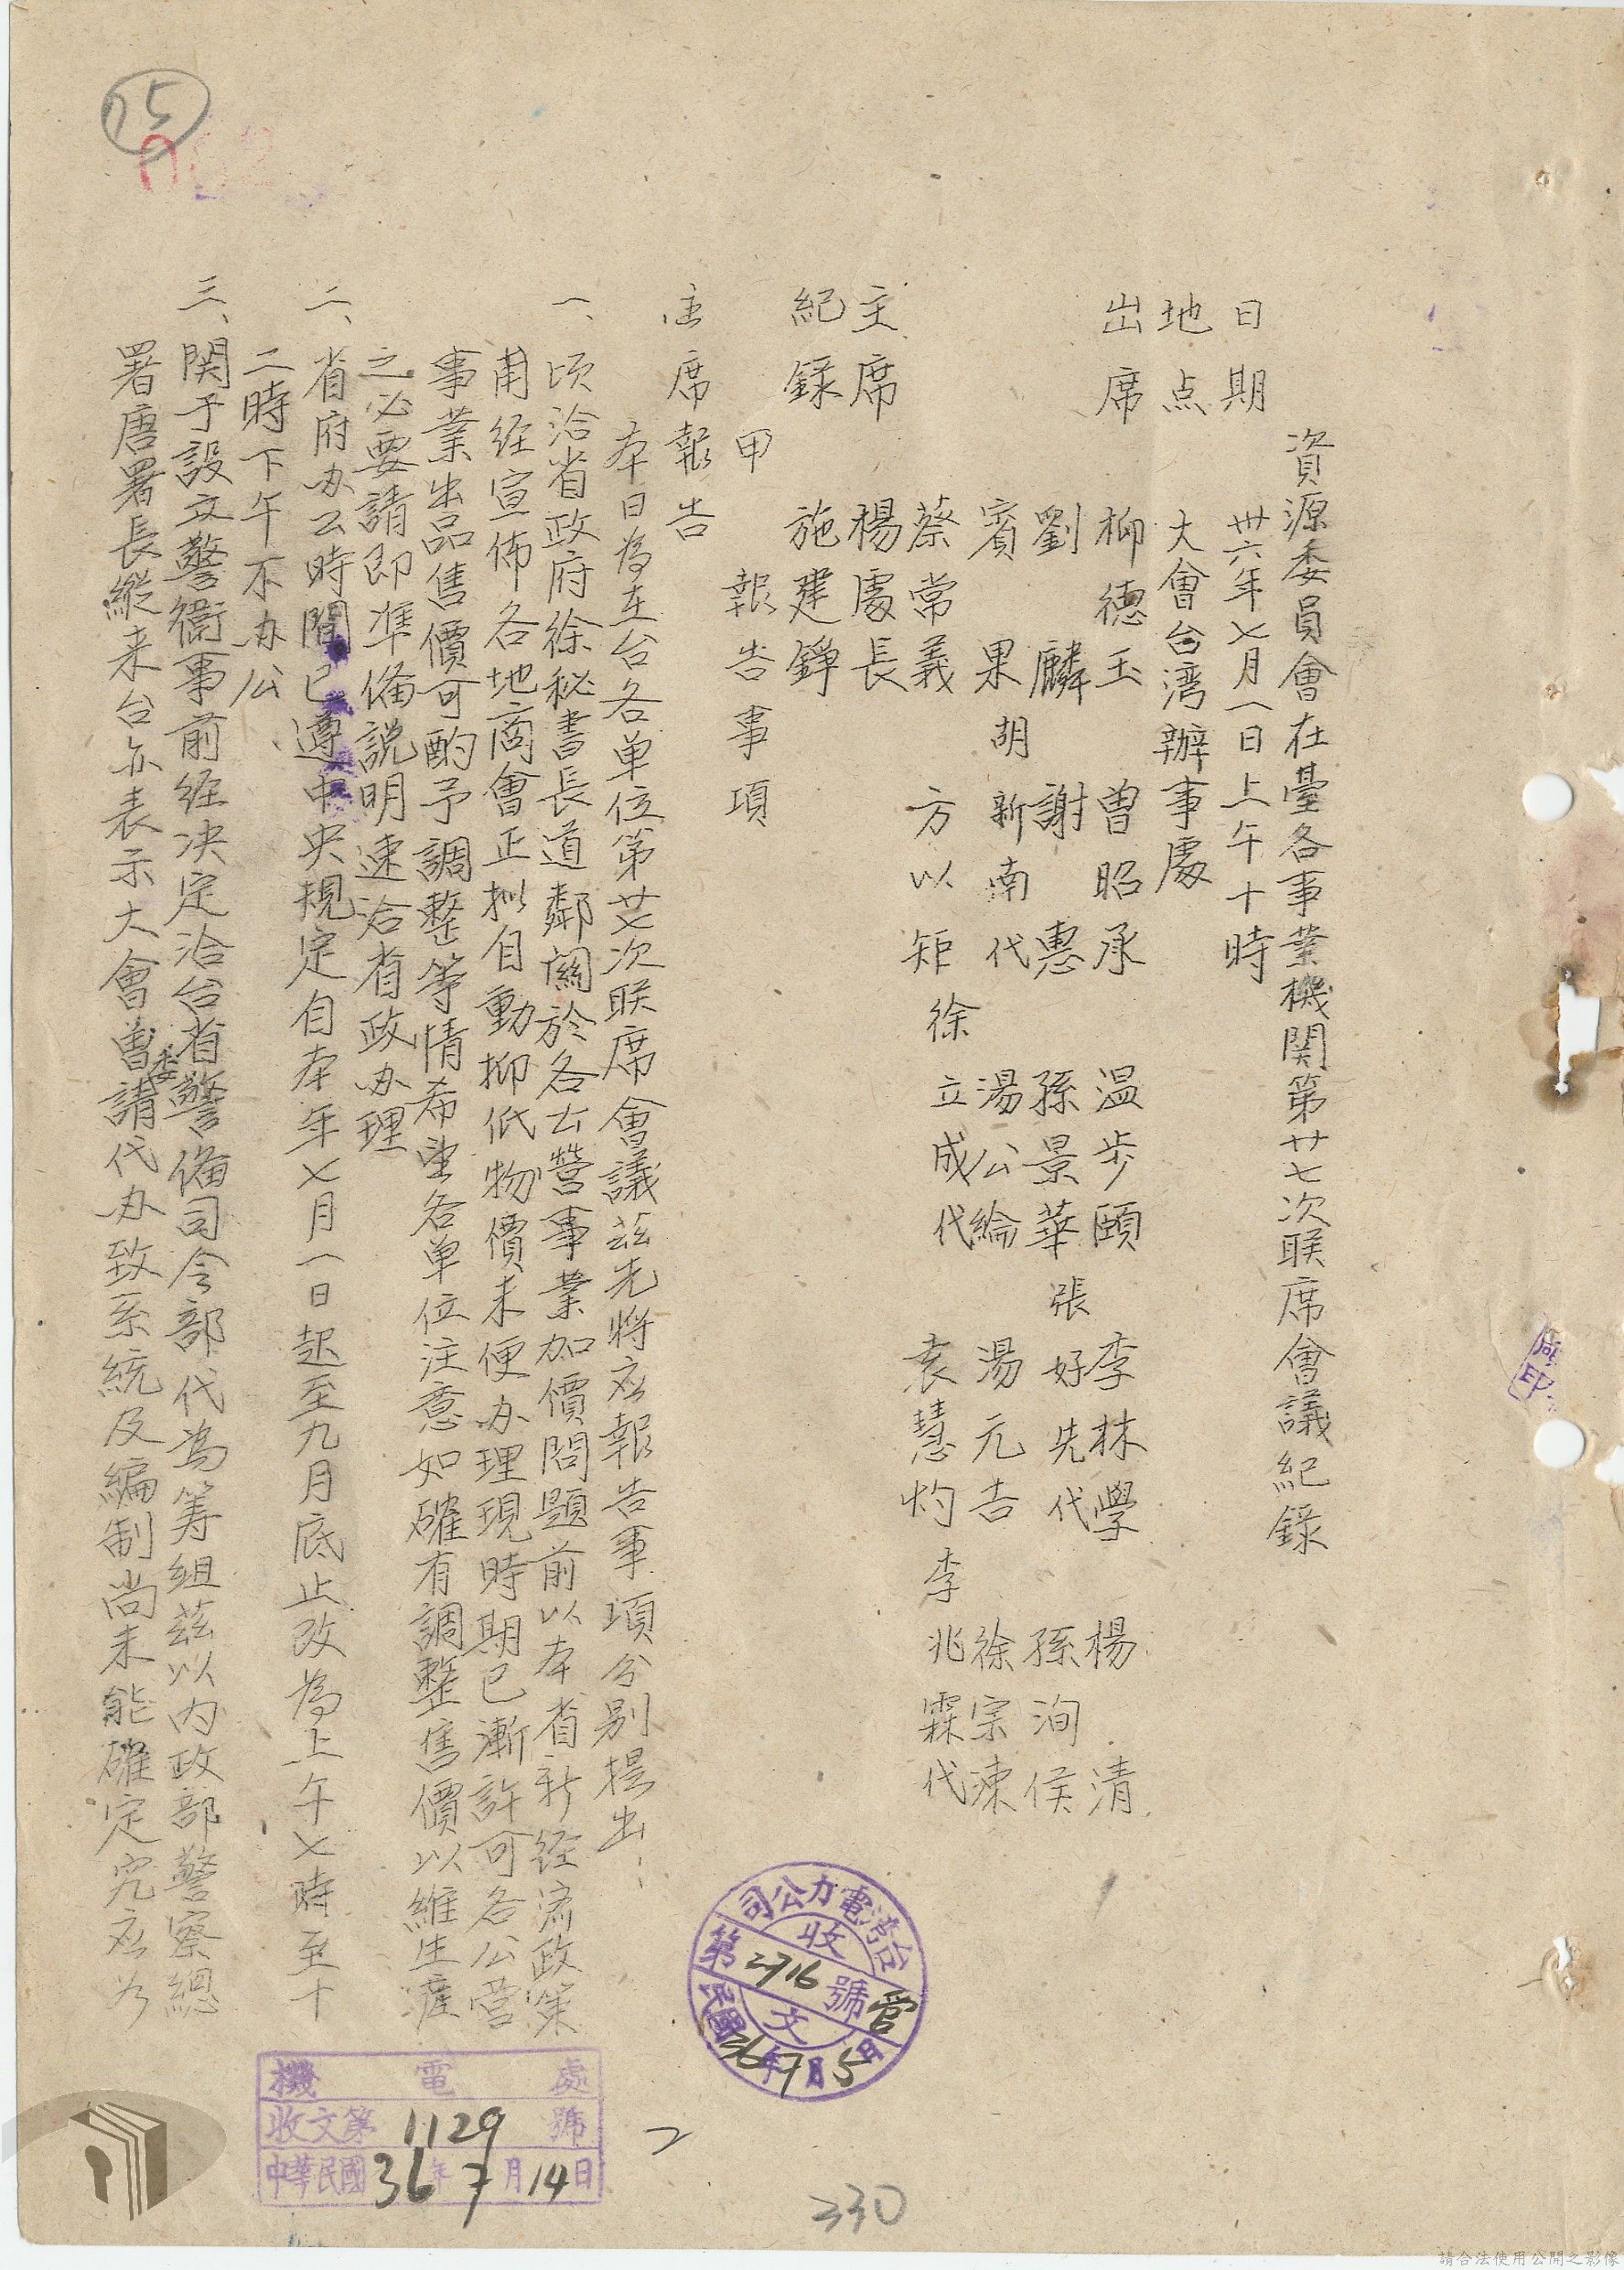 資源委員會在臺各事業機関第廿七次联席會議紀錄
日期　卅六年七月一日上午十時
地点　大會台湾辦事處
出席　柳德玉　曾昭承　温步頤　李林學　楊清
劉麟　謝惠　孫景華　張好先代　孫洵侯
賓果　胡新南代　湯公綸　湯元吉　徐宗涑
蔡常義　方以矩　徐立成代　袁慧灼　李兆霖代
主席　楊處長
紀錄　施建錚
甲　報告事項
主席報告
本日為在台各单位第廿七次联席會議茲先將应報告事項分別提出：
一、頃洽省政府徐秘書長道鄰關於各公營事業加價問題前以本省新经済政策
甫经宣佈各地商會正拟自動抑低物價未便办理現時期已漸許可各公营
事業出品售價可酌予調整等情希望各单位注意如確有調整售價以維生産
之必要請即準備説明速洽省政办理
二、省府办公時間已遵中央規定自本年七月一日起至九月底止改為上午七時至十
二時下午不办公
三、関于設立警衛事前经决定洽台省警備司令部代為筹组茲以内政部警察總
署唐署長縱来台亦表示大會曾委請代办致系統及編制尚未能確定究应为
台湾電力公司
收文
第2716號
管
民國36年7月5日
機電處
收文第1129號
中華民國36年7月14日
330
75
請合法使用公開之影像